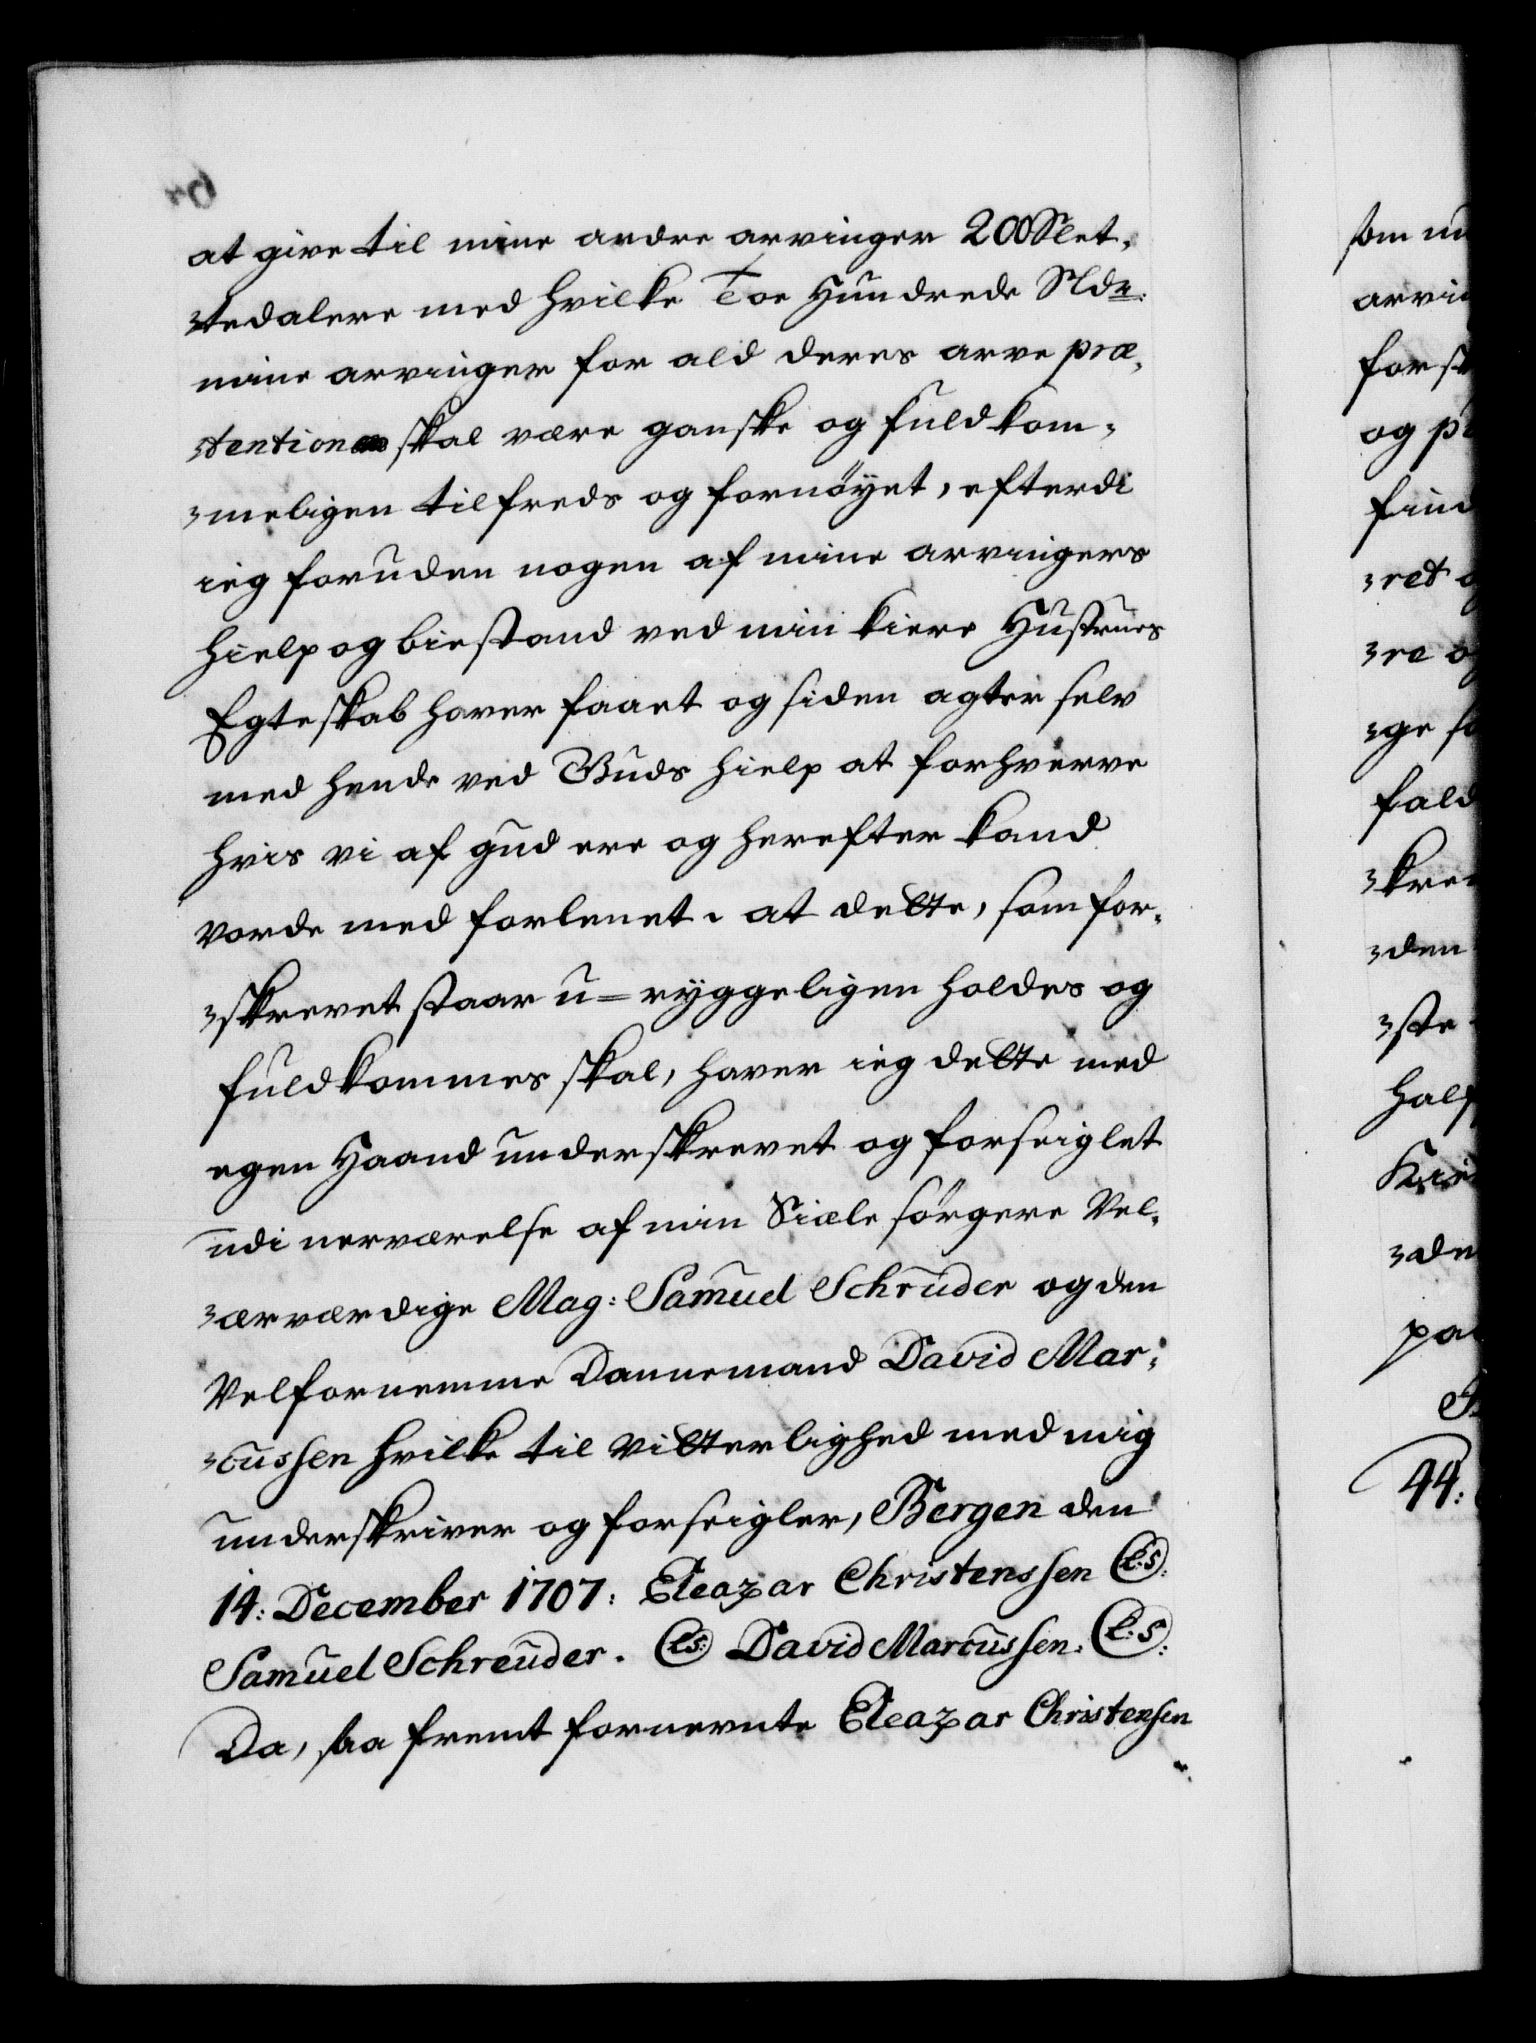 at give til mine andre arvinger 200 Slet,
tedalere med hvilke Toe Hundrede Sldr:
mine arvinger for ald deres arve præ,
tention skal være ganske og fuldkom,
meligen tilfreds og fornöyet, efterdi
ieg foruden nogen af mine arvingers
hielp og biestand ved min kiere Hustrues
Egteskab haver faaet og siden agter selv
med hende ved Guds hielp at forhverve
hvis vi af gud ere og herefter kand
vorde med forlenet. at dette, som for,
skrevet staar u=ryggeligen holdes og
fuldkommes skal, haver ieg dette med
egen Haand underskrevet og forseiglet
udi nerværelse af min Siæle sörgere Vel,
ærværdige Mag: Samuel Schruder og den
Velfornemme Dannemand David Mar,
cussen hvilke til vitterlighed med mig
underskriver og forseigler, Bergen den
14: December 1707: Eleazar Christenssen L.S.
Samuel Schreuder. LS: David Marcussen. L.S.:
Da, saa fremt fornevnte Eleazar Christensen
som
arvi
for
og
find
ret
re
ge
fald
skre
den
ste
half
de
44: